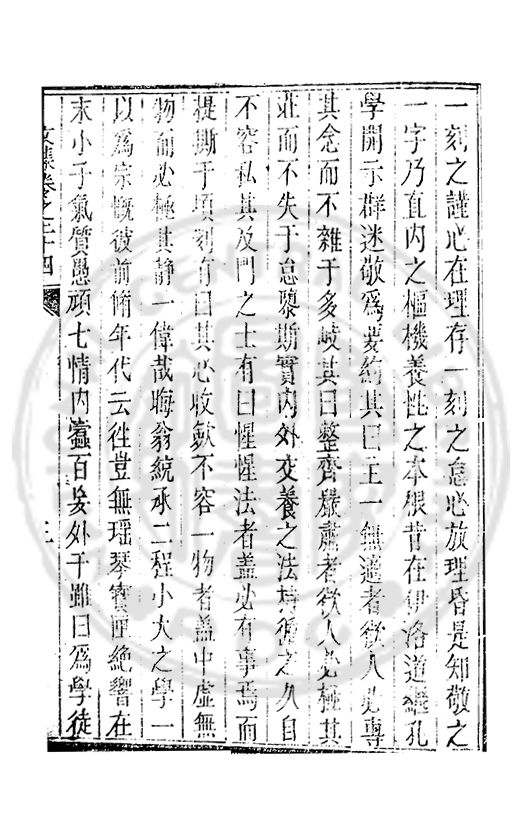 一刻之謹心在理存一刻之怠心放理昏是知敬之
一字乃直内之樞機養性之本根昔在伊洛道繼孔
學開示群迷敬爲要約其曰主一無適者欲人心專
其念而不雜于多岐其曰整齊嚴肅者欲人必極其
莊而不失于怠隳斯實内外交養之法持循之久自
不容私其及門之士有曰惺惺法者蓋必有事焉而
提撕于頃刻有曰其心收斂不容一物者蓋中虛無
物而必極其静一偉哉晦翁統承二程小大之學一
以爲宗慨彼前脩年代云徃豈無瑶琴寳匣絶響在
末小子氣質愚頑七情内蠹百妄外干雖曰爲學徒
文㨿卷之三十四
三